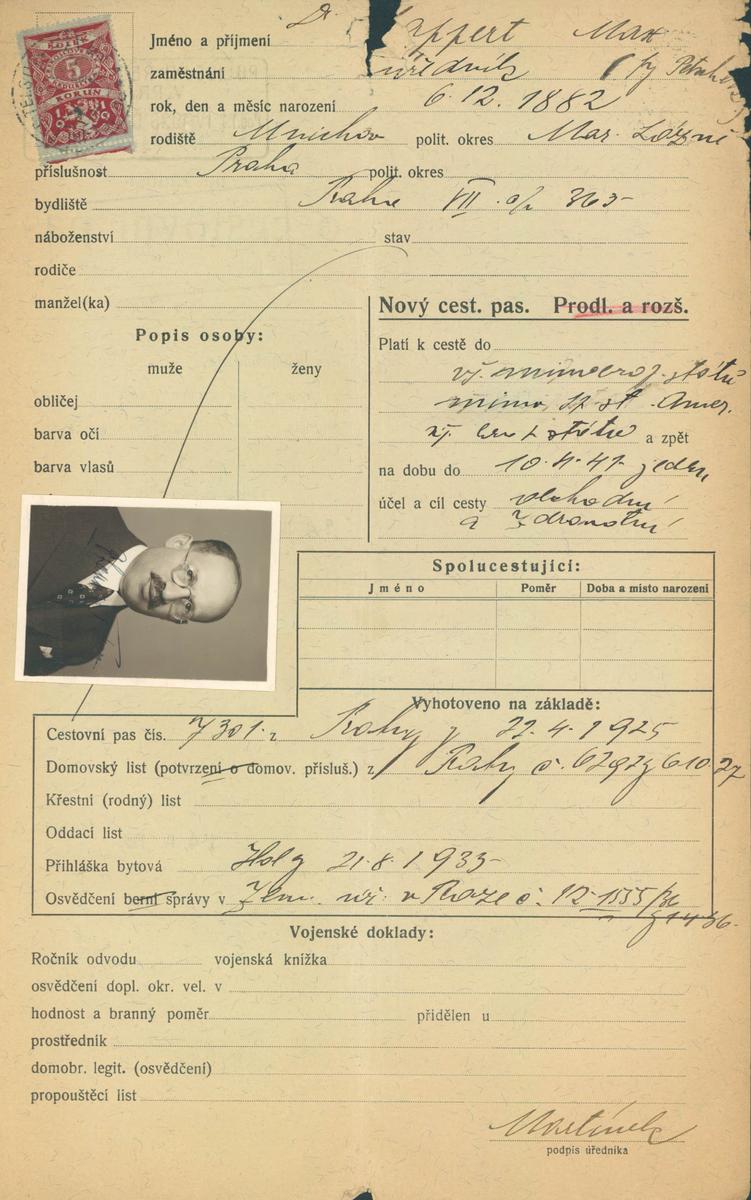 Dr.
Jméno a příjmení Lippert Max
zaměstnání úředník
rok, den a měsíc narození 6.12.1882
rodiště Mnichov polit. okres Mar. Lázně
příslušnost Praha polit. okres
bydliště Praha VII. čp 365
náboženství stav
rodiče
manžel(ka)
Nový cest. pas. Prodl. a rozš.
Popis osoby:
muže ženy
obličej
barva očí
barva vlasů
Platí k cestě do
vš. mimoevrop. států
mimo Sp. st. Amer.
vš. evr. států a zpět
na dobu do 10.4.41
účel a cíl cesty obchodní
a zdravotní
Spolucestující:
Jméno Poměr Doba a místo narození
Vyhotoveno na základě:
Cestovní pas čís. 7301 z Prahy z 22.4.1925
Domovský list (potvrzení o domov. přísluš.) z Prahy č.
Křestní (rodný) list
Oddací list
Přihláška bytová 21.8.1935
Osvědčení berní správy v Zem. úř. v Praze č. 12-1555/36
Vojenské doklady:
Ročník odvodu vojenská knížka
osvědčení dopl. okr. vel. v
hodnost a branný poměr přidělen u
prostředník
domobr. legit. (osvědčení)
propouštěcí list
Martínek
podpis úředníka
5
KORUN